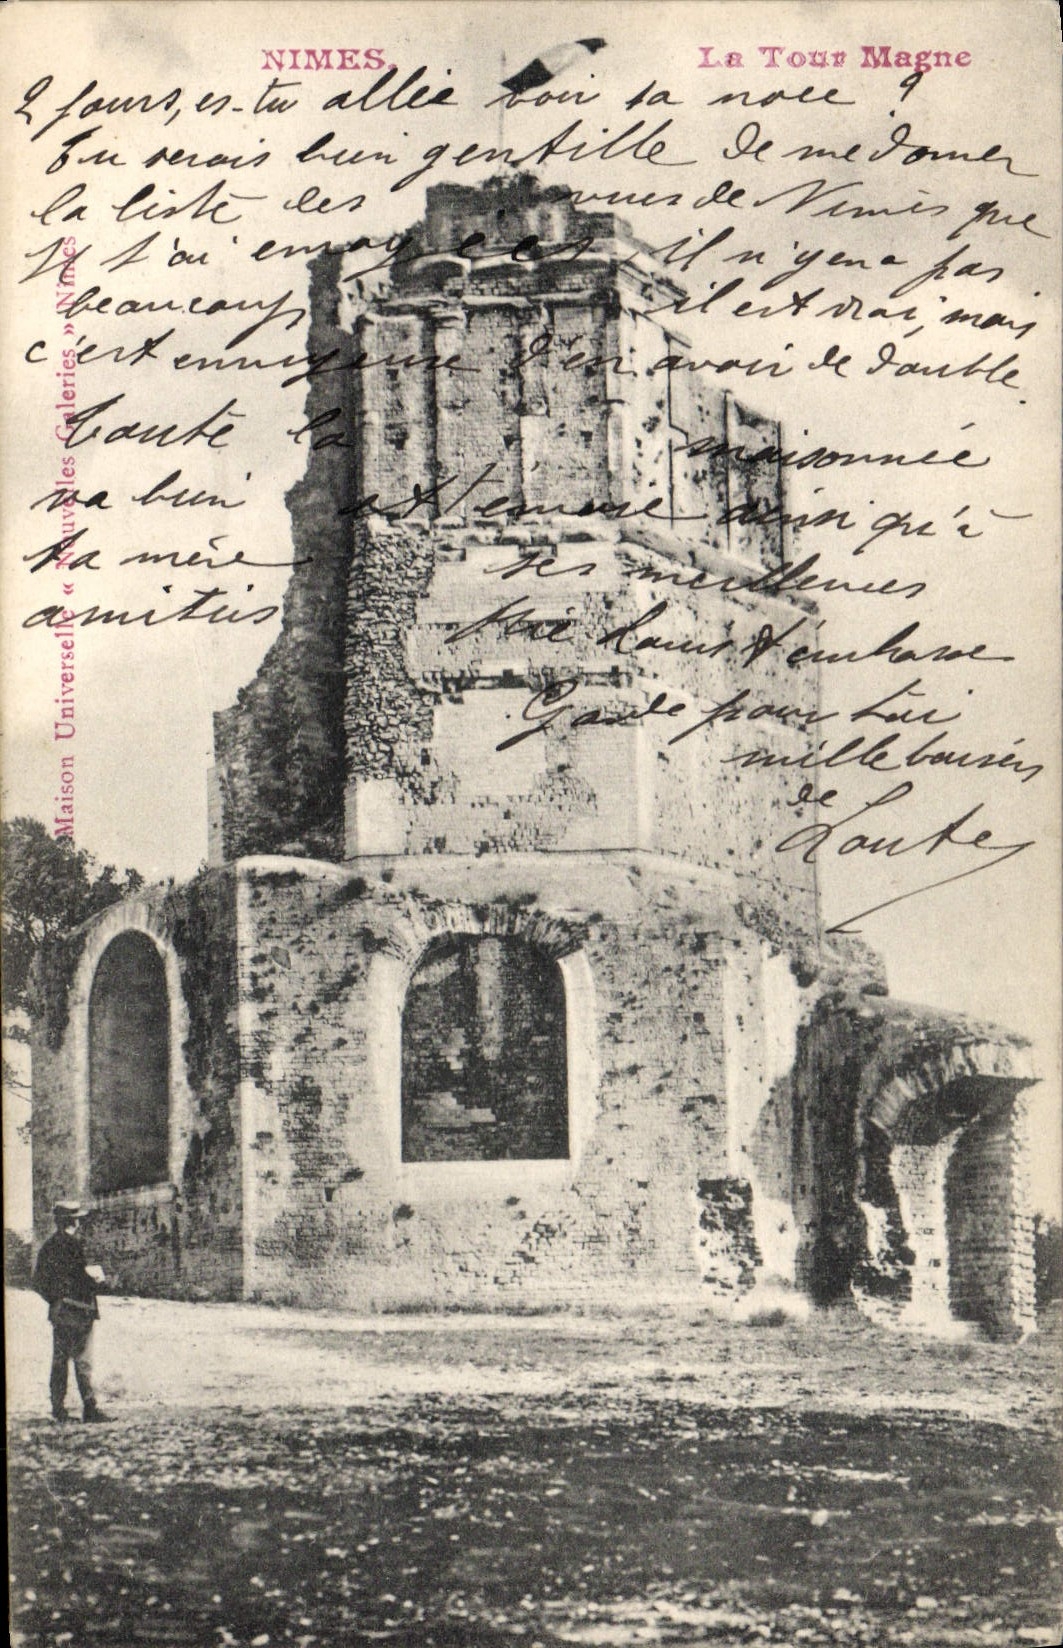 NIMES. La Tour Magne
2 jours, es-tu allée voir sa noce ?
Tu serais bien gentille de me donner
la liste des vues de Nimes que
je t'ai envoyées, il n'y en a pas
beaucoup il est vrai, mais
c'est ennuyeuse d'en avoir de double.
Toute la maisonnée
va bien et t'envoie ainsi qu'à
ta mère ses meilleures
amitiés Louis t'embrasse
Garde pour toi
mille baisers
de
Loute
Maison Universelle « Nouvelles Galeries » Nimes